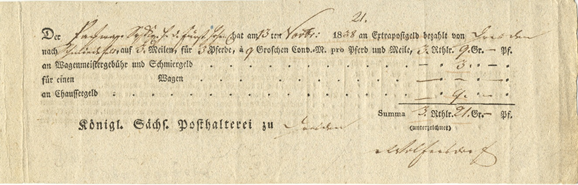 21.
Der hat am 13ten Novbr: 1838 an Extrapostgeld bezahlt von Dresden
nach auf 3 Meilen, für 3 Pferde, à 9 Groschen Conv.-M. pro Pferd und Meile, 3. Rthlr. 9. Gr. — Pf.
an Wagenmeistergebühr und Schmiergeld — „ 3. „ — „
für einen Wagen — „ — „ — „
an Chausseegeld — „ 9. „ — „
Summa 3. Rthlr. 21. Gr. — Pf.
Königl. Sächs. Posthalterei zu Dresden
(unterzeichnet)